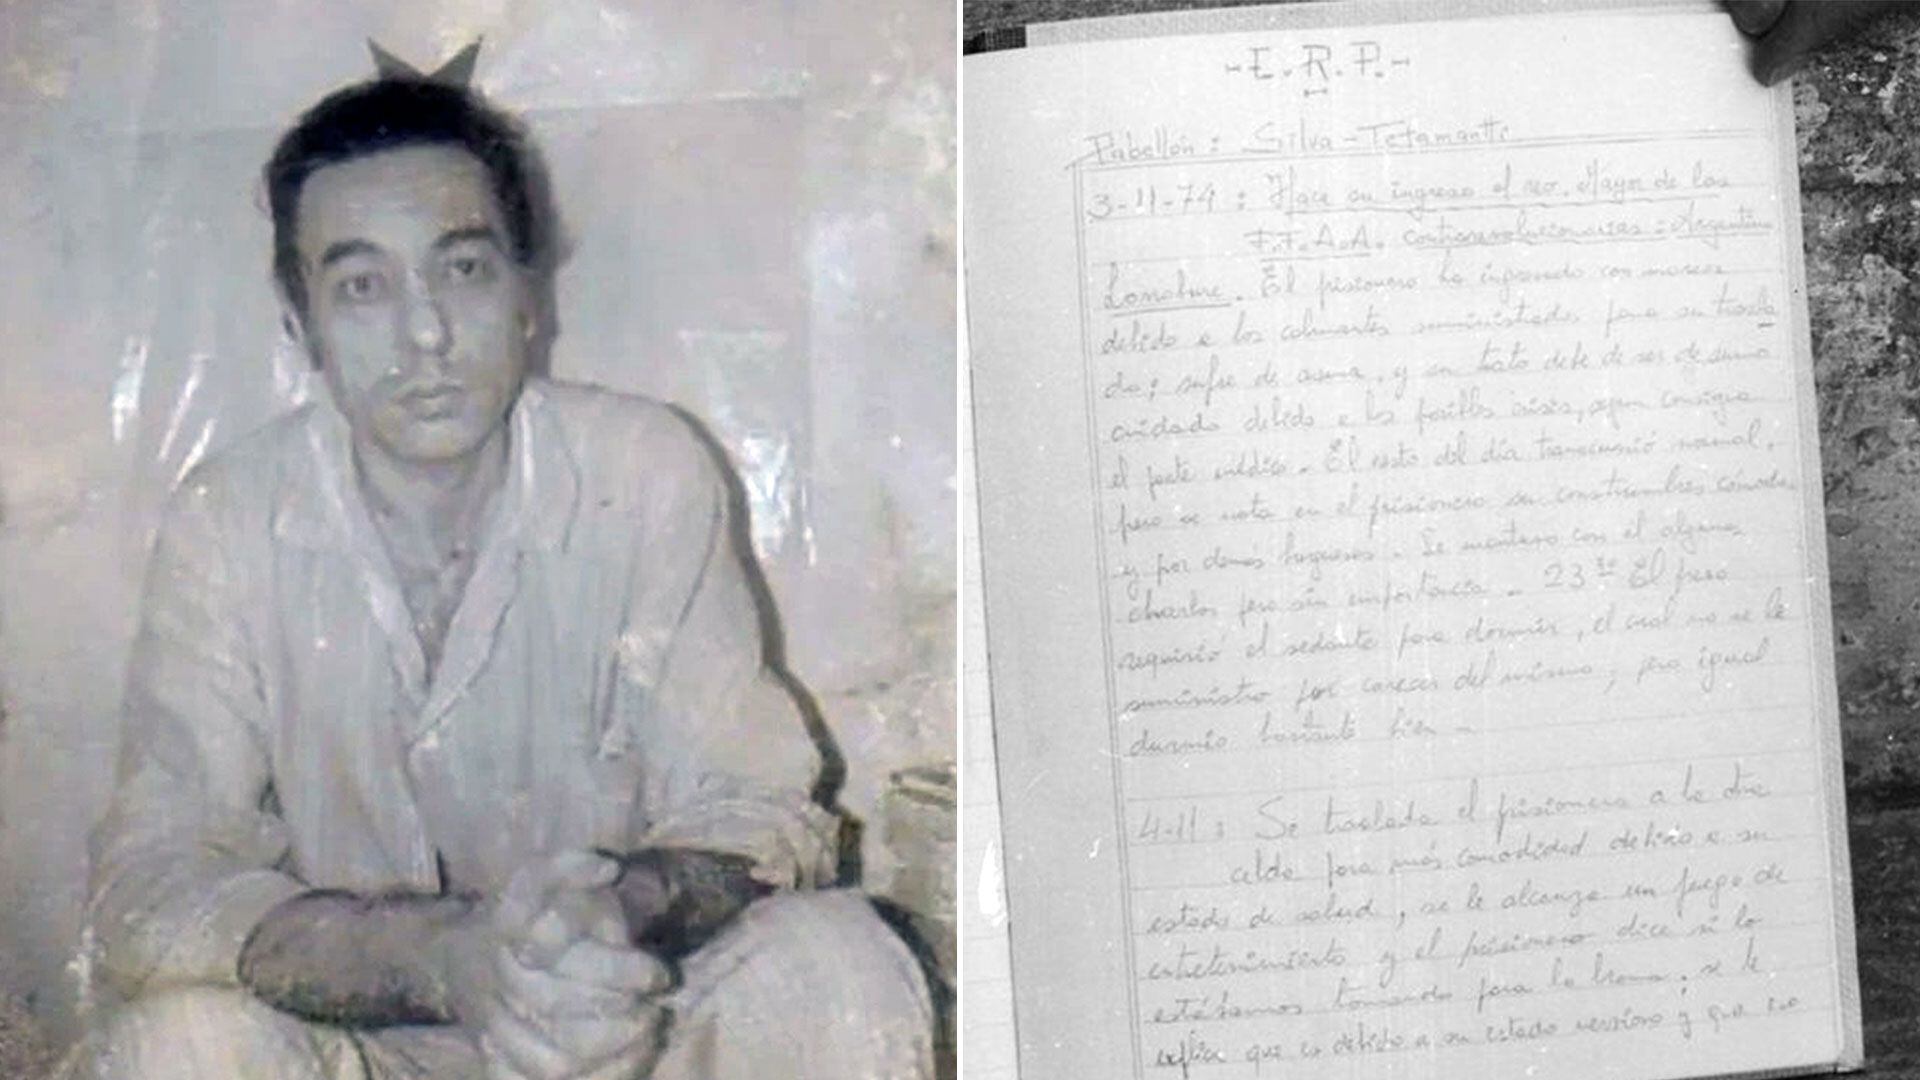 -E.R.P.-
Pabellón: Silva - Tetamantti
3-11-74: Hace su ingreso el reo. Mayor de las
FF.A.A. contrarevolucionarias: Argentino
Larrabure. El prisionero ha ingresado con mareos
debido a los calmantes suministrados para su trasla
do; sufre de asma, y su trato debe de ser de sumo
cuidado debido a las posibles crisis, segun consigna
el parte médico. El resto del día transcurrió normal,
pero se nota en el prisionero sus constumbres cómodas
y por demás burguesas. Se mantuvo con el algunas
charlas pero sin importancia. 23 hs El preso
requirió el sedante para dormir, el cual no se le
suministro por carecer del mismo, pero igual
durmió bastante bien -
4-11: Se traslada el prisionero a la otra
celda para más comodidad debido a su
estado de salud, se le alcanza un juego de
entretenimiento y el prisionero dice si lo
estábamos tomando para la broma; se le
explica que es debido a su estado nervioso y que no